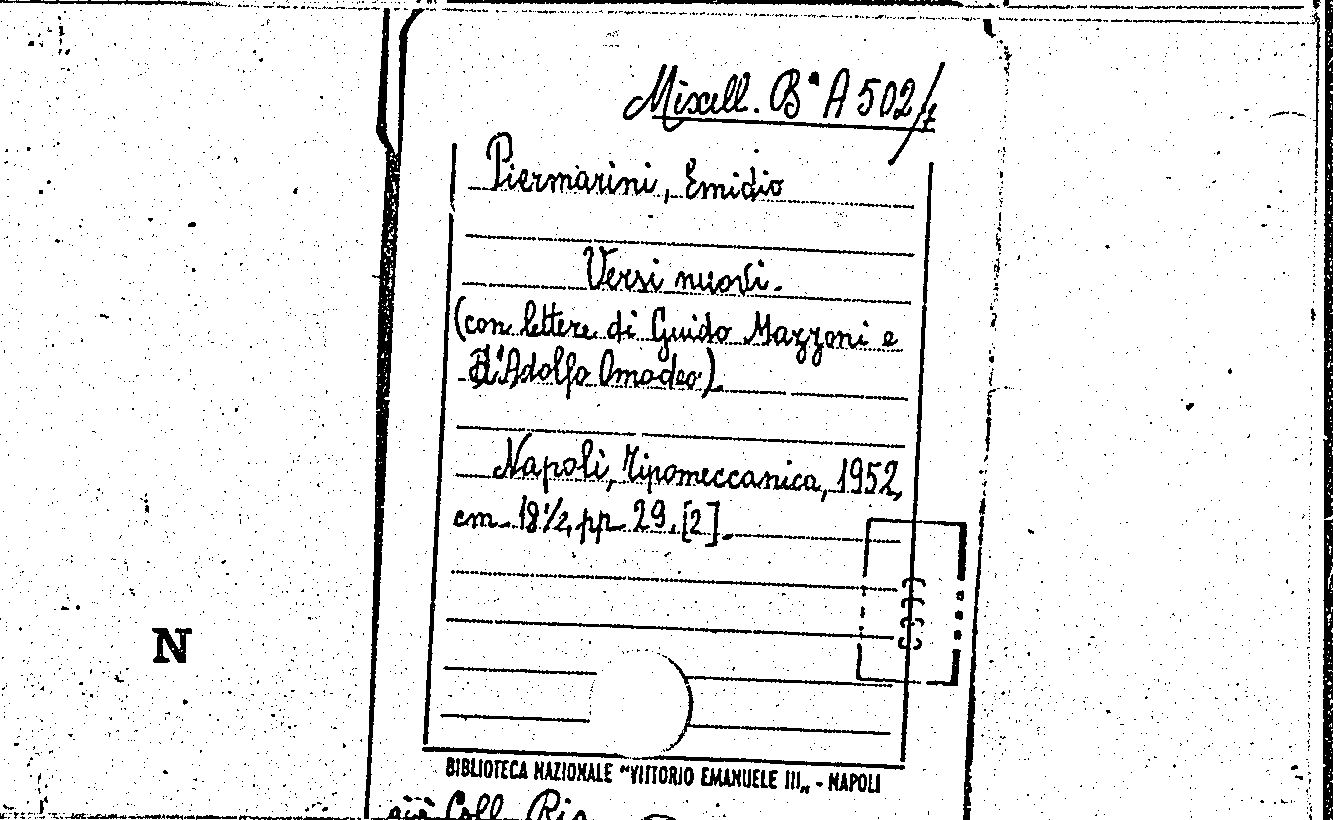 Miscell. Bª A 502/7
Piermarini, Emidio
Versi nuovi.
(con lettere di Guido Mazzoni e
d'Adolfo Omodeo).
Napoli, Tipomeccanica, 1952,
cm. 18½, pp. 29, [2].
N
BIBLIOTECA NAZIONALE "VITTORIO EMANUELE III„ - NAPOLI
già Coll.